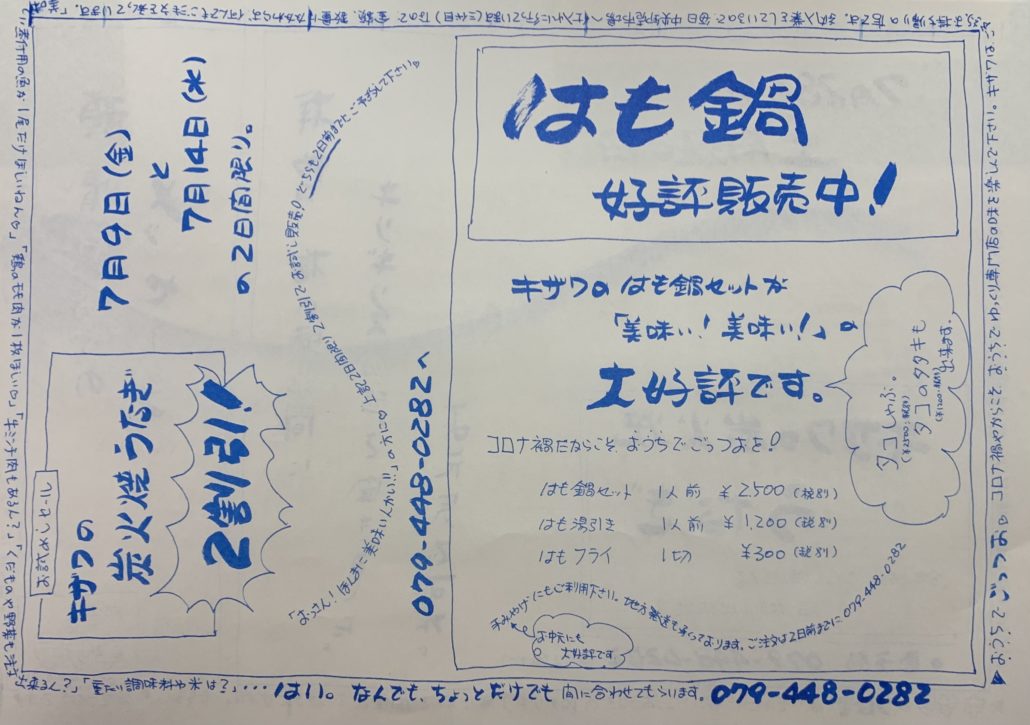 はも鍋
好評販売中！
キザワの はも鍋セットが
「美味い！美味い！」の
大好評です。
コロナ禍だからこそ、おうちでごっつぉを！
はも鍋セット 1人前 ¥2,500（税別）
はも湯引き 1人前 ¥1,200（税別）
はもフライ 1切 ¥300（税別）
タコしゃぶ。
タコのタタキも
出来ます。
手みやげにもご利用下さい。地方発送も承っております。ご注文は2日前までに 079-448-0282
お中元にも
大好評です。
7月9日（金）
と
7月14日（水）
の2日間限り。
お試めしセール
キザワの
炭火焼うなぎ
2割引！
「おっさん！ほんまに美味いんかい!!」の方に♡ 上記2日間限り 2割引で お試し販売！ どちらも2日前までにご予約して下さい♡
079-448-0282へ
▶おうちで ごっつぉ♡ コロナ禍やからこそ、おうちでゆっくり専門店の味を楽しんで下さい。キザワは、
「鶏のモモ肉が1枚ほしい。」「ミンチ肉もあるん？」「くだものや野菜も注文
出来るん？」「重たい調味料や米は？」・・・はい。なんでも、ちょっとだけでも 間に合わせてもらいます。079-448-0282